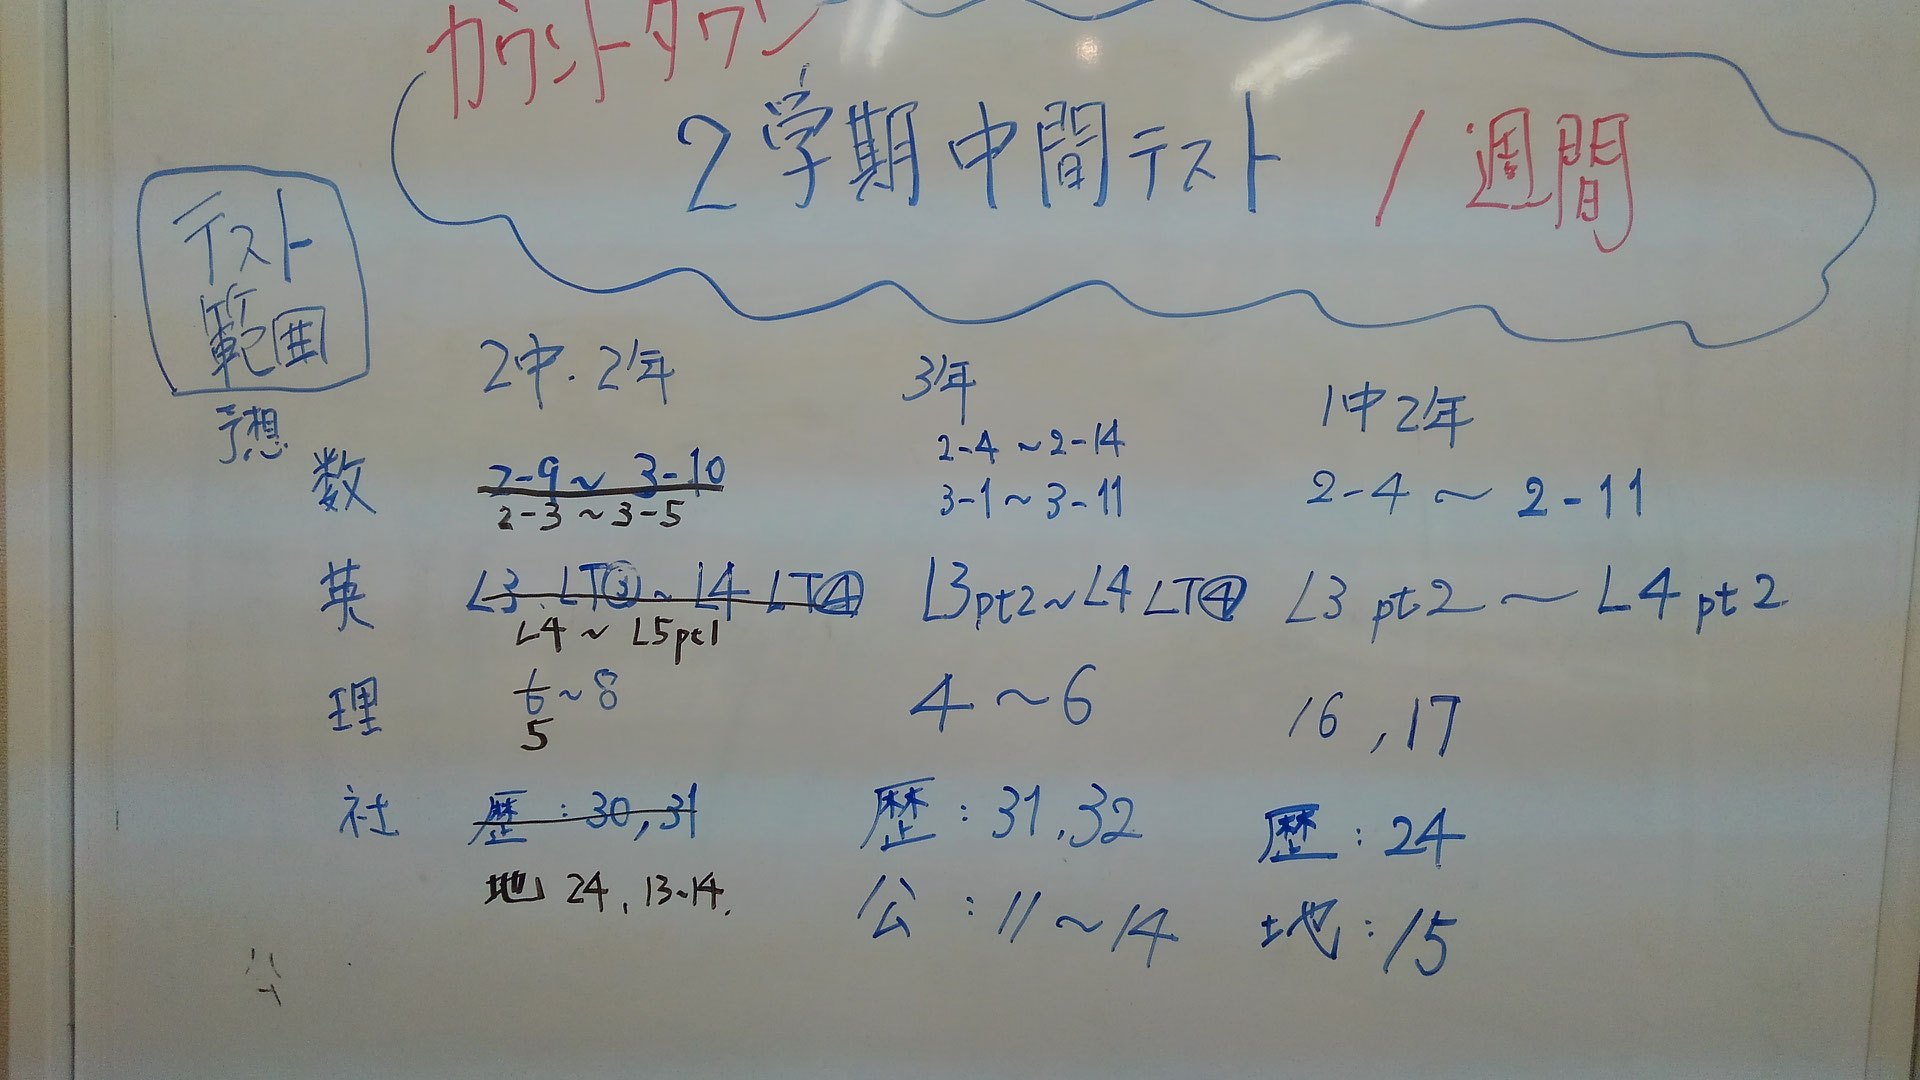 カウントダウン
2学期中間テスト 1週間
テスト
範囲
予想
2中・2年 3年 1中2年
2-4～2-14
数 2-9～3-10 3-1～3-11 2-4～2-11
2-3～3-5
英 L3 LT③～L4 LT④ L3pt2～L4 LT④ L3 pt2～L4 pt2
L4～L5pt1
理 6～8 4～6 16,17
5
社 歴:30,31 歴:31,32 歴:24
地 24,13~14. 公:11～14 地:15